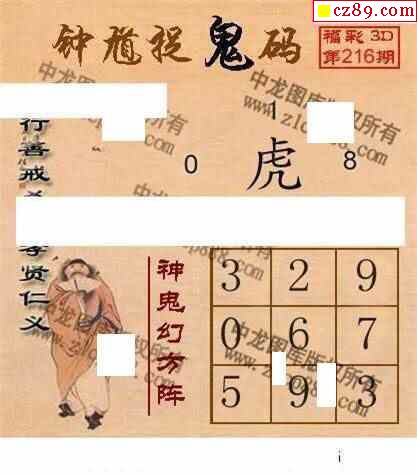 cz89.com
钟馗捉鬼码
福彩3D
第216期
中龙图库版权所有
1
0 虎 8
行善戒
孝贤仁义
神鬼幻方阵
3 2 9
0 6 7
5 9 3
中龙图库版权所有
i